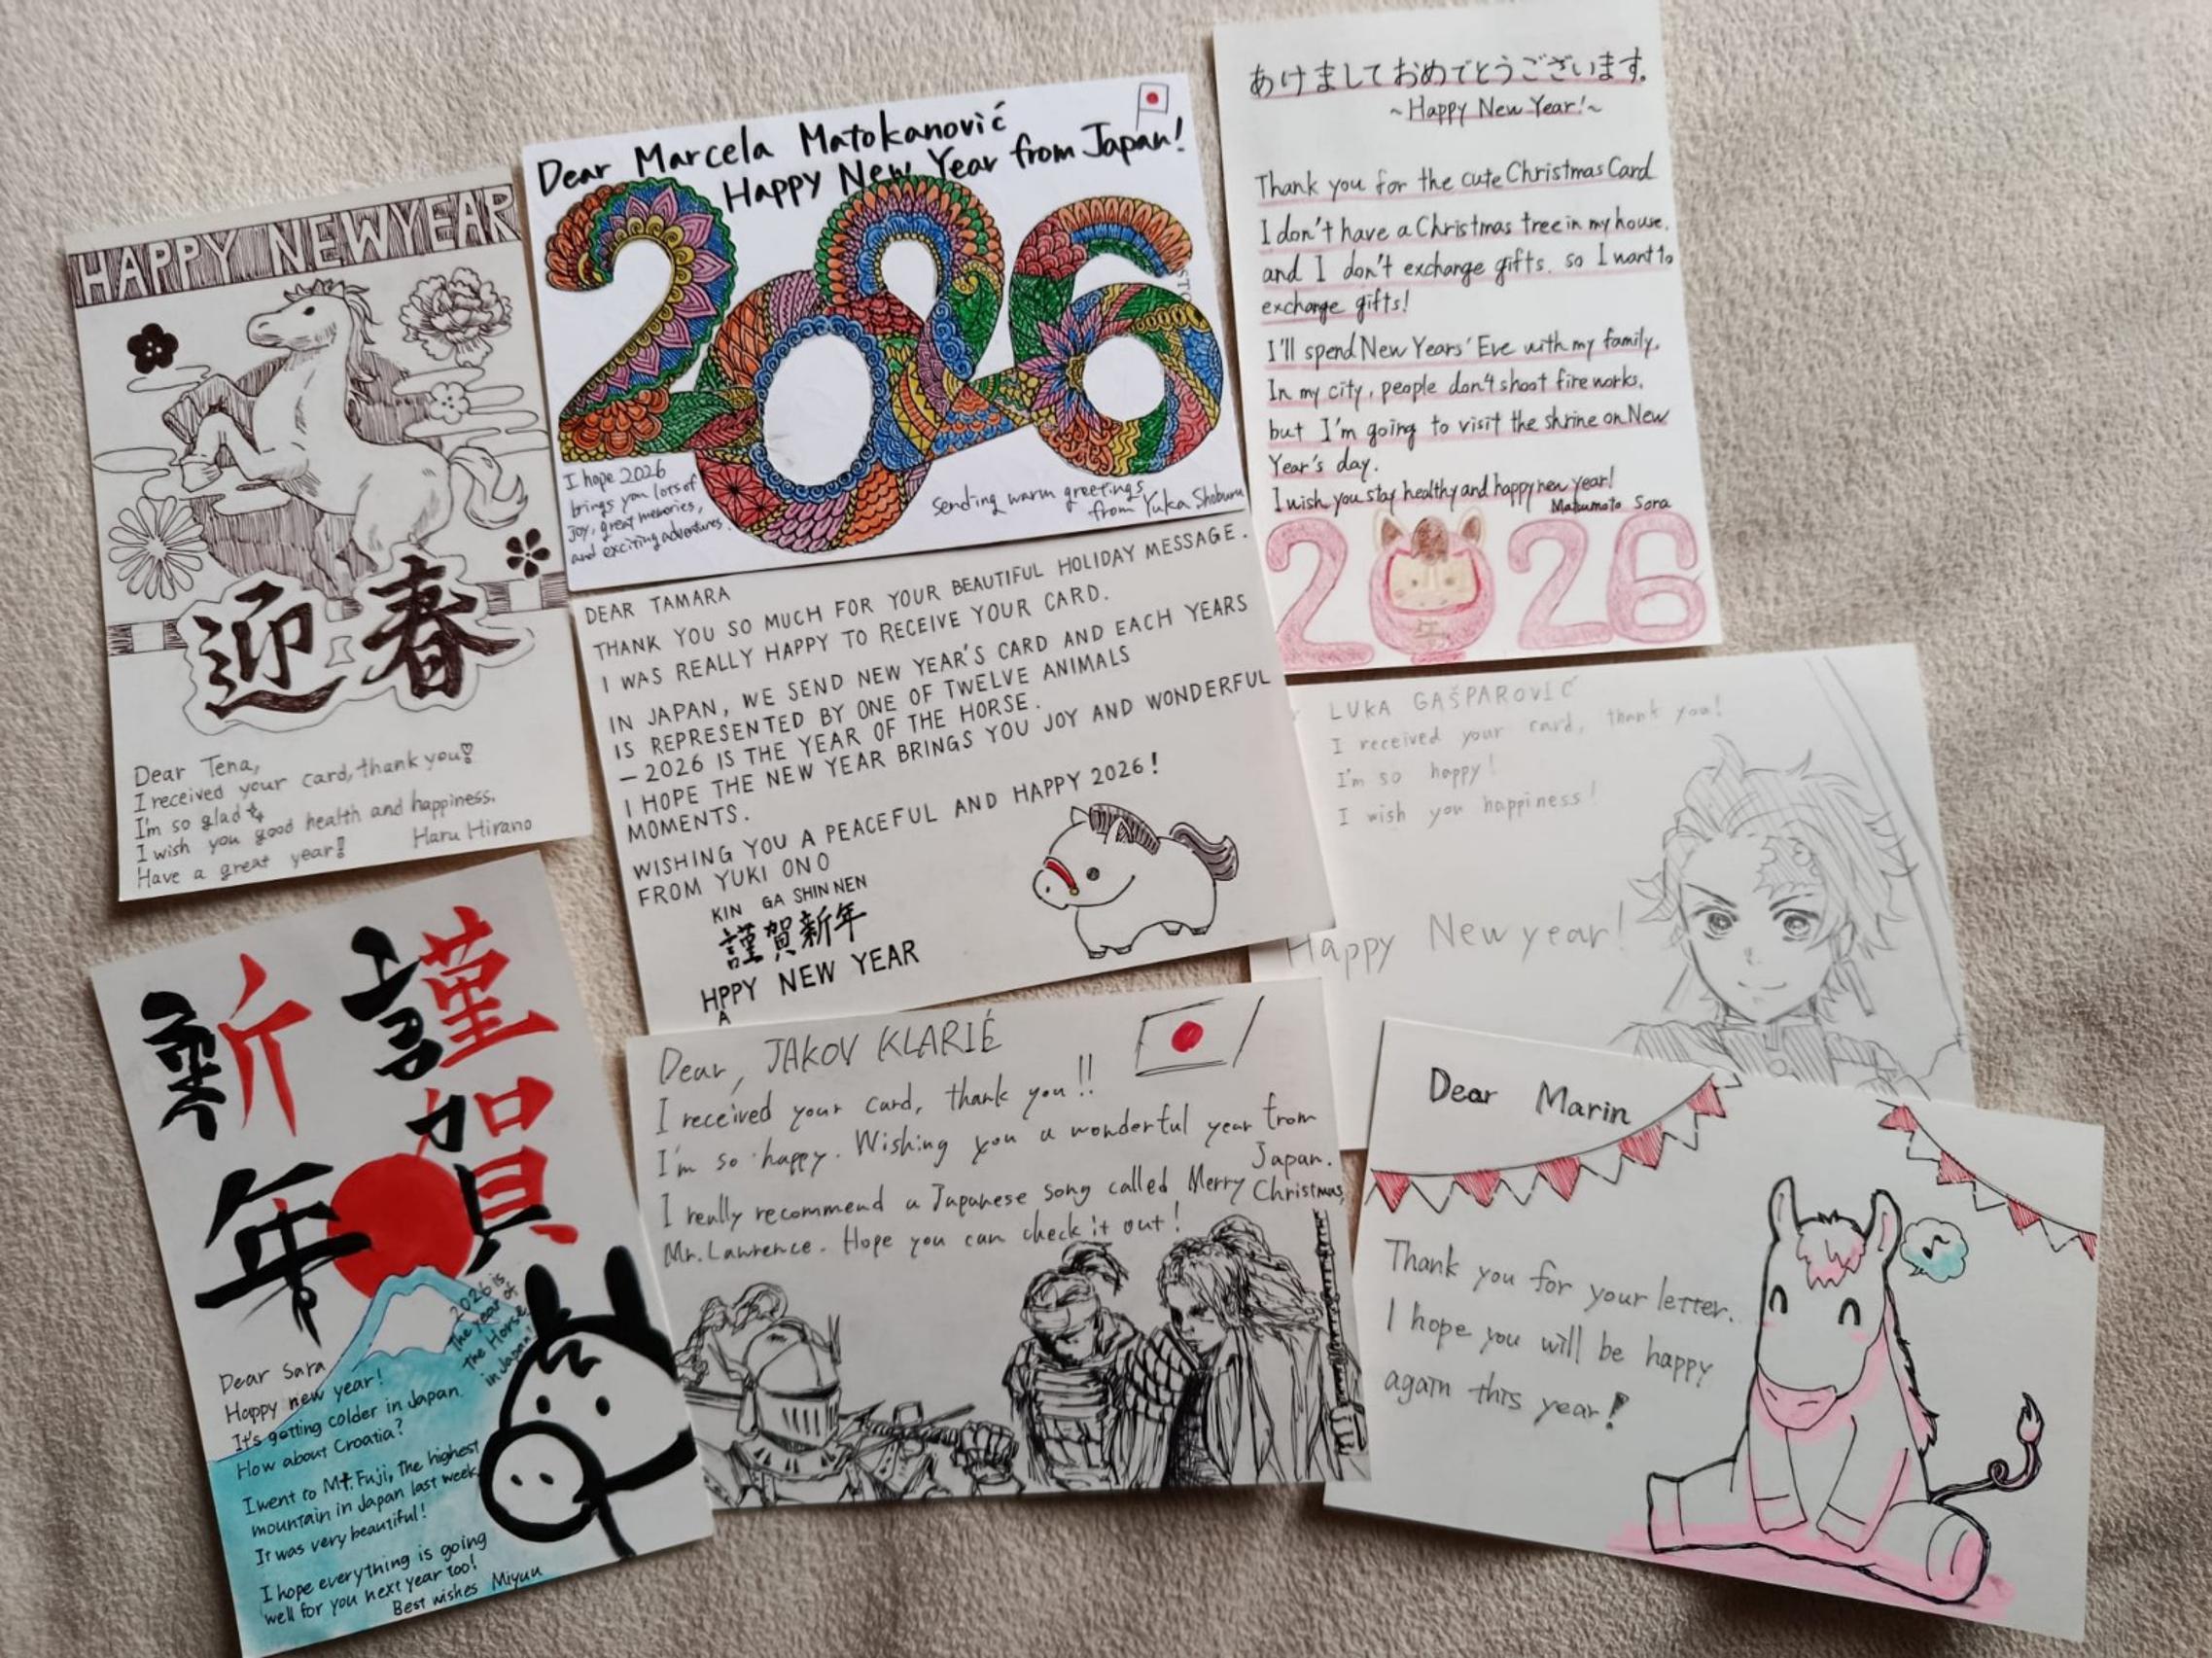 HAPPY NEW YEAR
迎春
Dear Tena,
I received your card, thank you!!
I'm so glad
I wish you good health and happiness.
Have a great year!!
Haru Hirano
Dear Marcela Matokanović
Happy New Year from Japan!
2026
I hope 2026
brings you lots of
joy, great memories,
and exciting adventures.
Sending warm greetings
from Yuka Shoburu
あけましておめでとうございます。
~Happy New Year!~
Thank you for the cute Christmas Card
I don't have a Christmas tree in my house.
and I don't exchange gifts. so I want to
exchange gifts!
I'll spend New Years' Eve with my family.
In my city, people don't shoot fireworks.
but I'm going to visit the shrine on New
Year's day.
I wish you stay healthy and happy new year!
Matsumoto Sora
2026
DEAR TAMARA
THANK YOU SO MUCH FOR YOUR BEAUTIFUL HOLIDAY MESSAGE.
I WAS REALLY HAPPY TO RECEIVE YOUR CARD.
IN JAPAN, WE SEND NEW YEAR'S CARD AND EACH YEARS
IS REPRESENTED BY ONE OF TWELVE ANIMALS
– 2026 IS THE YEAR OF THE HORSE.
I HOPE THE NEW YEAR BRINGS YOU JOY AND WONDERFUL
MOMENTS.
WISHING YOU A PEACEFUL AND HAPPY 2026!
FROM YUKI ONO
KIN GA SHIN NEN
謹賀新年
HPPY NEW YEAR
A
LUKA GAŠPAROVIĆ
I received your card, thank you!
I'm so happy!
I wish you happiness!
Happy New year!
謹賀
新年
2026 is
the year of
the Horse
in Japan!
Dear Sara
Happy new year!
It's getting colder in Japan.
How about Croatia?
I went to Mt. Fuji, the highest
mountain in Japan last week.
It was very beautiful!
I hope everything is going
well for you next year too!
Best wishes Miyuu
Dear, JAKOV KLARIĆ
I received your card, thank you!!
I'm so happy. Wishing you a wonderful year from
Japan.
I really recommend a Japanese song called Merry Christmas,
Mr. Lawrence. Hope you can check it out!
Dear Marin
Thank you for your letter.
I hope you will be happy
again this year!